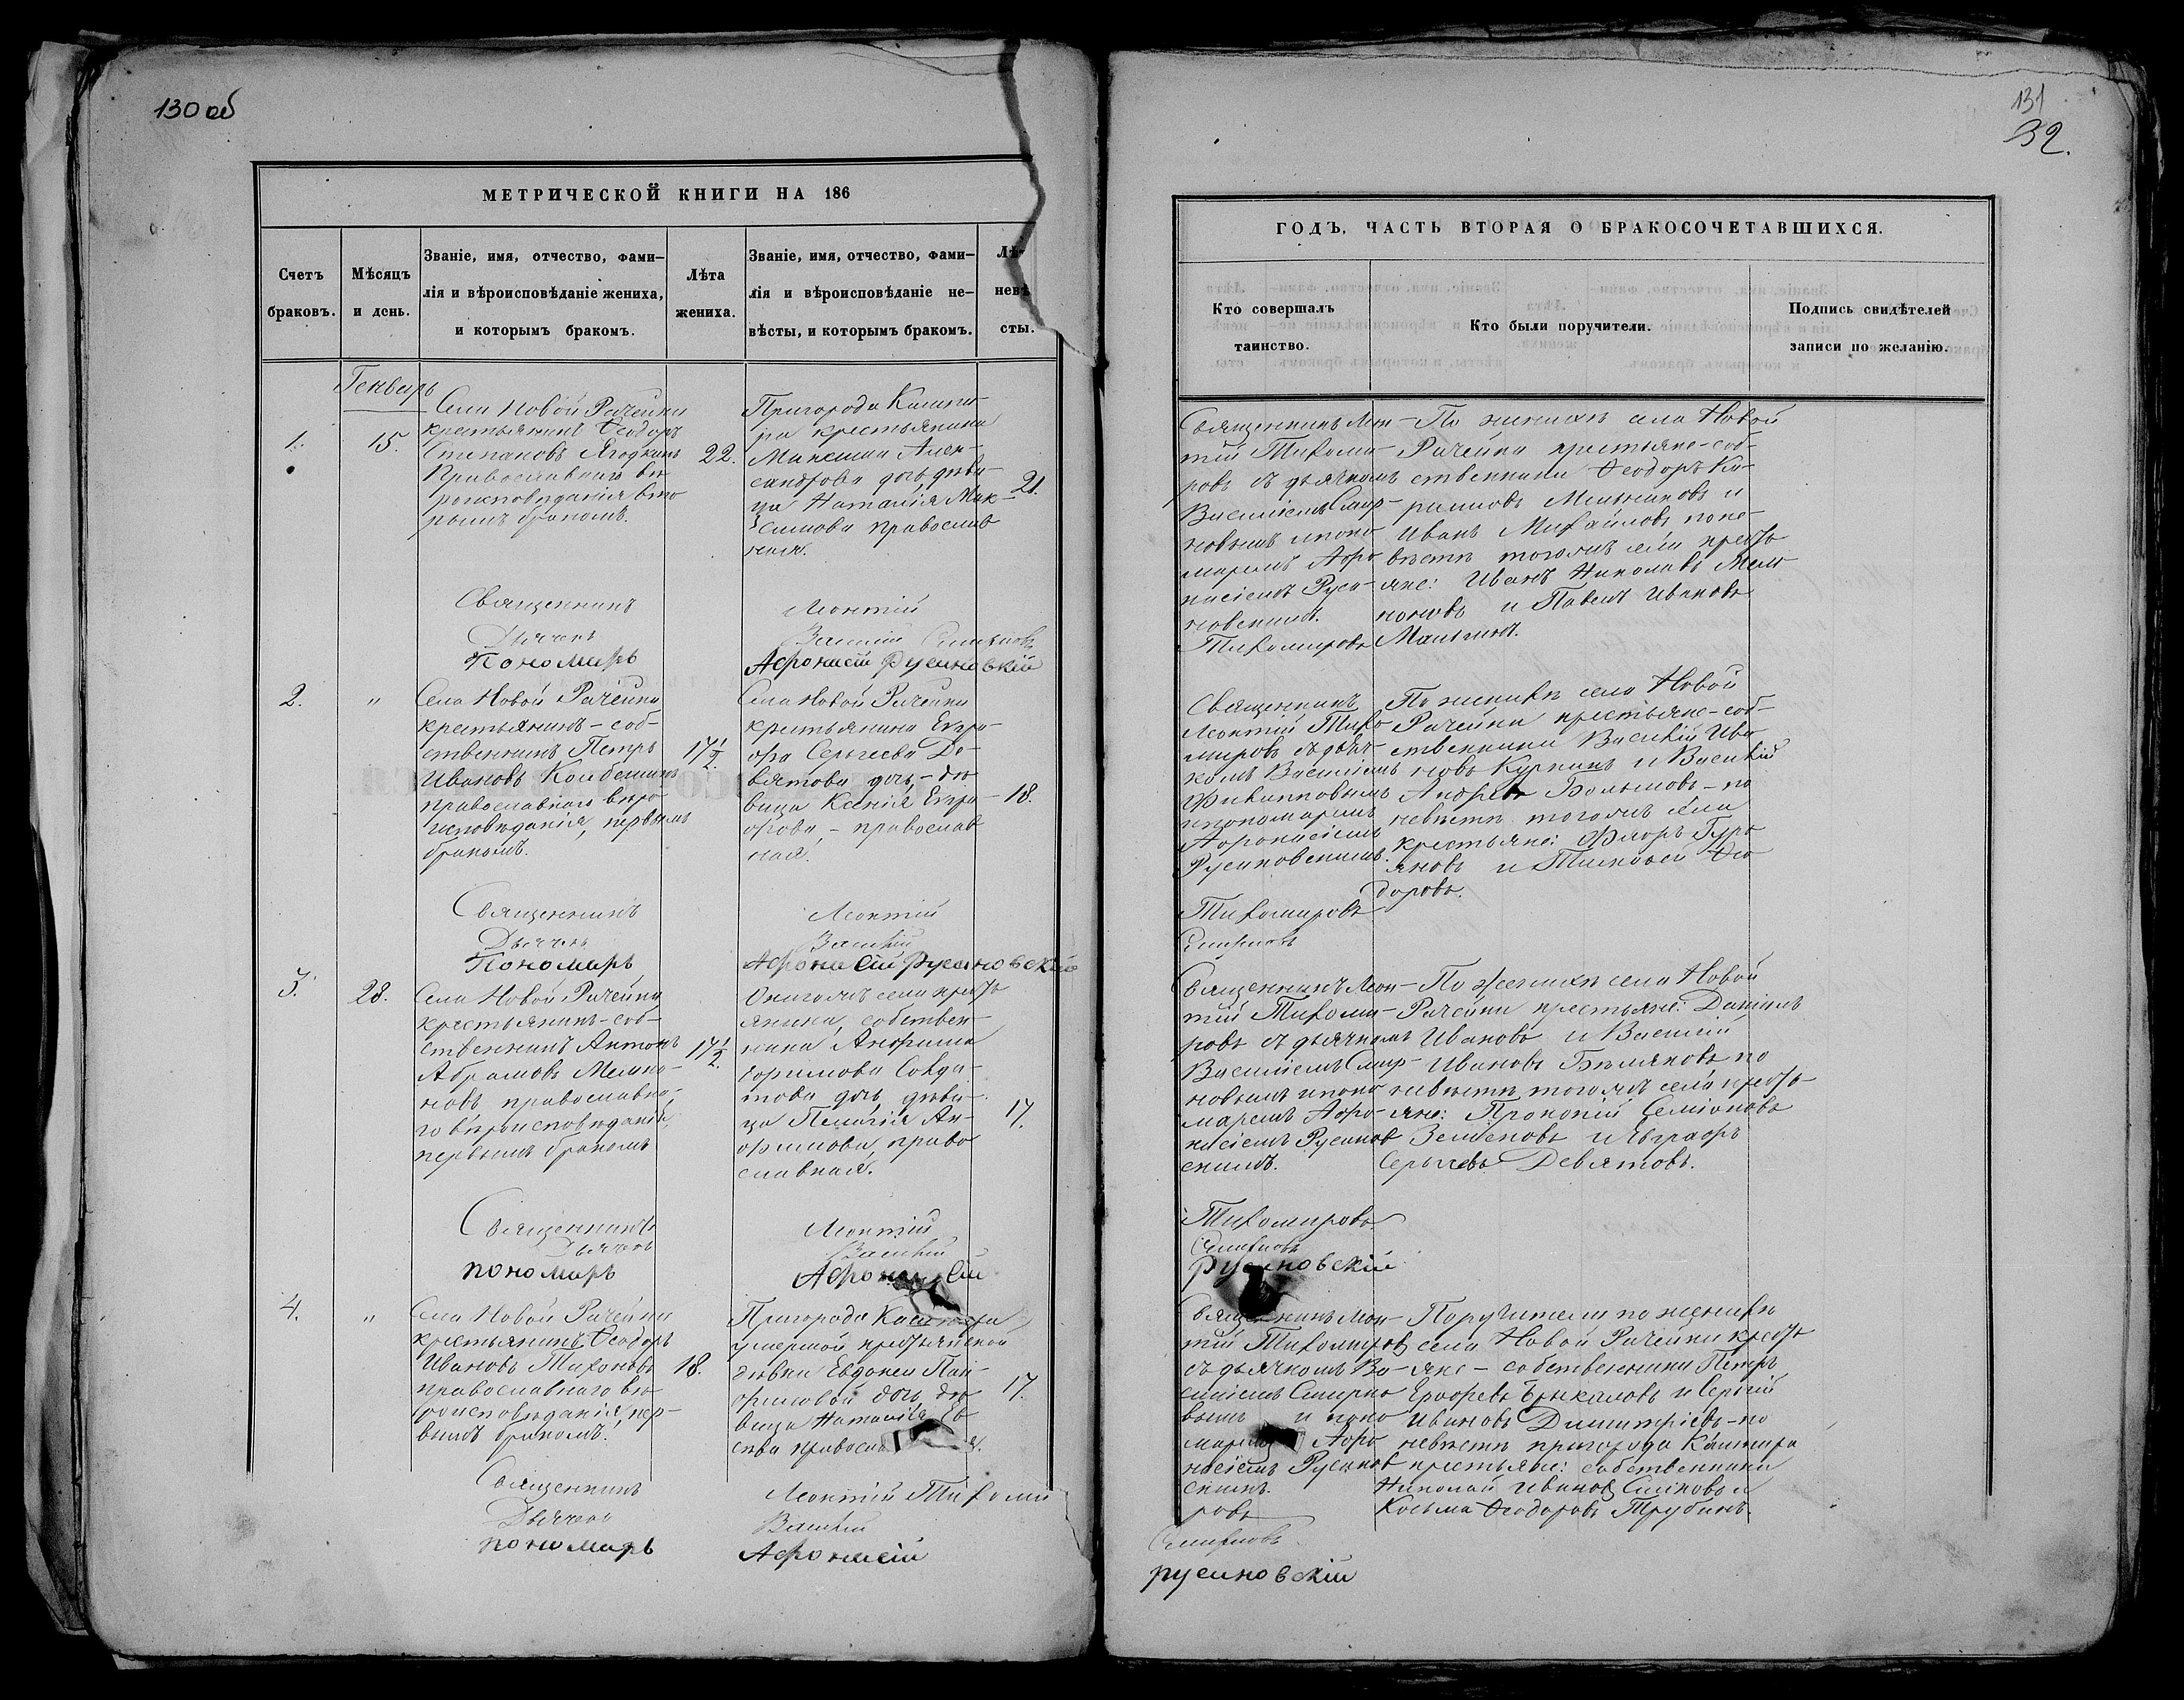 130 об
МЕТРИЧЕСКОЙ КНИГИ НА 186
Счетъ
браковъ.
Мѣсяцъ
и день.
Званіе, имя, отчество, фами-
лія и вѣроисповѣданіе жениха,
и которымъ бракомъ.
Лѣта
жениха.
Званіе, имя, отчество, фами-
лія и вѣроисповѣданіе не-
вѣсты, и которымъ бракомъ.
Лѣт
невѣ
сты.
Генварь
1.
15.
Села Новой Рачейки
крестьянинъ Ѳеодоръ
Степановъ Ягодкинъ
православнаго вѣ
роисповѣданія вто
рымъ бракомъ.
22.
Пригорода Кашпи-
ра крестьянина
Максима Алек-
сандрова дочь дѣви-
ца Наталія Мак-
симова православ
ная.
21.
Священникъ Леонтій
Дьячекъ Василій Смирновъ
Пономарь Афонасій Русиновскій
2.
"
Села Новой Рачейки
крестьянинъ-соб-
ственникъ Петръ
Ивановъ
православнаго вѣро-
исповѣданія, первымъ
бракомъ.
17 1/2.
Села Новой Рачейки
крестьянина Евгра-
фа Сергѣева Де-
вятова дочь-дѣ
вица Ксенія Евгра-
фова,- православ
ная.
18.
Священникъ Леонтій
Дьячекъ Василій
Пономарь Афонасій Русиновскій
3.
28.
Села Новой Рачейки
крестьянинъ-соб-
ственникъ Антонъ
Абрамовъ
православна-
го вѣроисповѣданія,
первымъ бракомъ
17 1/2.
Онагожъ села кресть
янина, собствен-
ника Анфима
Солда-
това дочь дѣви-
ца Пелагія Ан-
фимова, право
славная.
17.
Священникъ Леонтій
Дьячекъ Василій
пономарь Афонасій
4.
"
Села Новой Рачейки
крестьянинъ Ѳеодоръ
Ивановъ Тихоновъ
православнаго вѣ-
роисповѣданія, пер-
вымъ бракомъ.
18.
Пригорода Кашпира
умершой крестьянской
дѣвки Евдокеи Пан-
филовой дочь дѣ
вица Наталія
17.
Священникъ Леонтій Тихоми
Дьячекъ Василій
пономарь Афонасій
131
32.
ГОДЪ, ЧАСТЬ ВТОРАЯ О БРАКОСОЧЕТАВШИХСЯ.
Кто совершалъ
таинство.
Кто были поручители.
Подпись свидѣтелей
записи по желанію.
Священникъ Леон-
тій Тихоми-
ровъ съ дьячкомъ
Василіемъ Смир-
новымъ и поно
маремъ Афо
насіемъ Руси-
новскимъ.
Тихомировъ
По женихѣ села Новой
Рачейки крестьяне-соб-
ственники Ѳеодоръ Ки-
рилловъ и
Иванъ Михайловъ, по не-
вѣстѣ тогожъ села кресть
яне: Иванъ Николаевъ
и Павелъ Ивановъ
Священникъ
Леонтій Тихо
мировъ съ дьяч-
комъ Василіемъ
Филипповымъ
и пономаремъ
Афонасіемъ
Русиновскимъ.
Тихомировъ
Смирновъ
По женихѣ села Новой
Рачейки крестьяне-соб-
ственники Василій Ива
новъ Куркинъ и Василій
Андреевъ - по
невѣстѣ тогожъ села
крестьяне: Флоръ
и Тимофей Ѳео
доровъ.
Священникъ Леон-
тій Тихоми-
ровъ съ дьячкомъ
Василіемъ Смир-
новымъ и поно
маремъ Афо-
насіемъ Русинов
скимъ.
Тихомировъ
Смирновъ
Русиновскій
По женихѣ села Новой
Рачейки крестьяне: Даніилъ
Ивановъ и Василій
Ивановъ Бѣляковъ по
невѣстѣ тогожъ села кресть-
яне: Прокопій Семіоновъ
и Евграфъ
Сергѣевъ Девятовъ.
Священникъ Леон-
тій Тихомировъ
съ дьячкомъ Ва-
силіемъ Смирно
вымъ и поно
Афо
насіемъ Русинов
скимъ.
ровъ
Смирновъ
русиновскій
Поручители по женихѣ
села Новой Рачейки кресть
яне - собственники Петръ
и Сергій
Ивановъ Димитріевъ - по
невѣстѣ пригорода Кашпира
крестьяне: собственники
Николай Ивановъ и
Косьма Ѳеодоровъ Трубинъ.